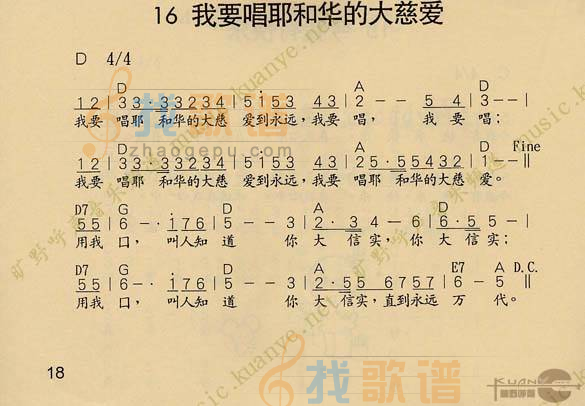 16 我要唱耶和华的大慈爱
D 4/4
D A D
1 2 | 3 3 · 3 3 2 3 4 | 5 1 5 3 4 3 | 2 — — 5 4 | 3 — — |
我要 唱耶 和华的大慈 爱到永远，我要 唱， 我 要 唱；
D A D Fine
1 2 | 3 3 · 3 3 2 3 4 | 5 1 5 3 4 3 | 2 5 · 5 5 4 3 2 | 1 — — ‖
我要 唱耶 和华的大慈 爱到永远，我要 唱耶 和华的大慈 爱。
D7 G D A D A
5 5 | 6 — · 1 7 6 | 5 — — 3 | 2 · 3 4 — 6 | 6 · 5 5 — |
用我 口， 叫人知 道 你 大 信 实， 你 大 信 实；
D7 G D A E7 A D.C.
5 5 | 6 — · 1 7 6 | 5 — — 3 | 2 5 5 6 7 5 7 | 6 — 5 ‖
用我 口， 叫人知 道 你 大 信实，直到永远 万 代。
18
找歌谱
zhaogepu.com
旷野呼声音乐网 music.kuanye.net
找歌谱
KUANYE
旷野呼声